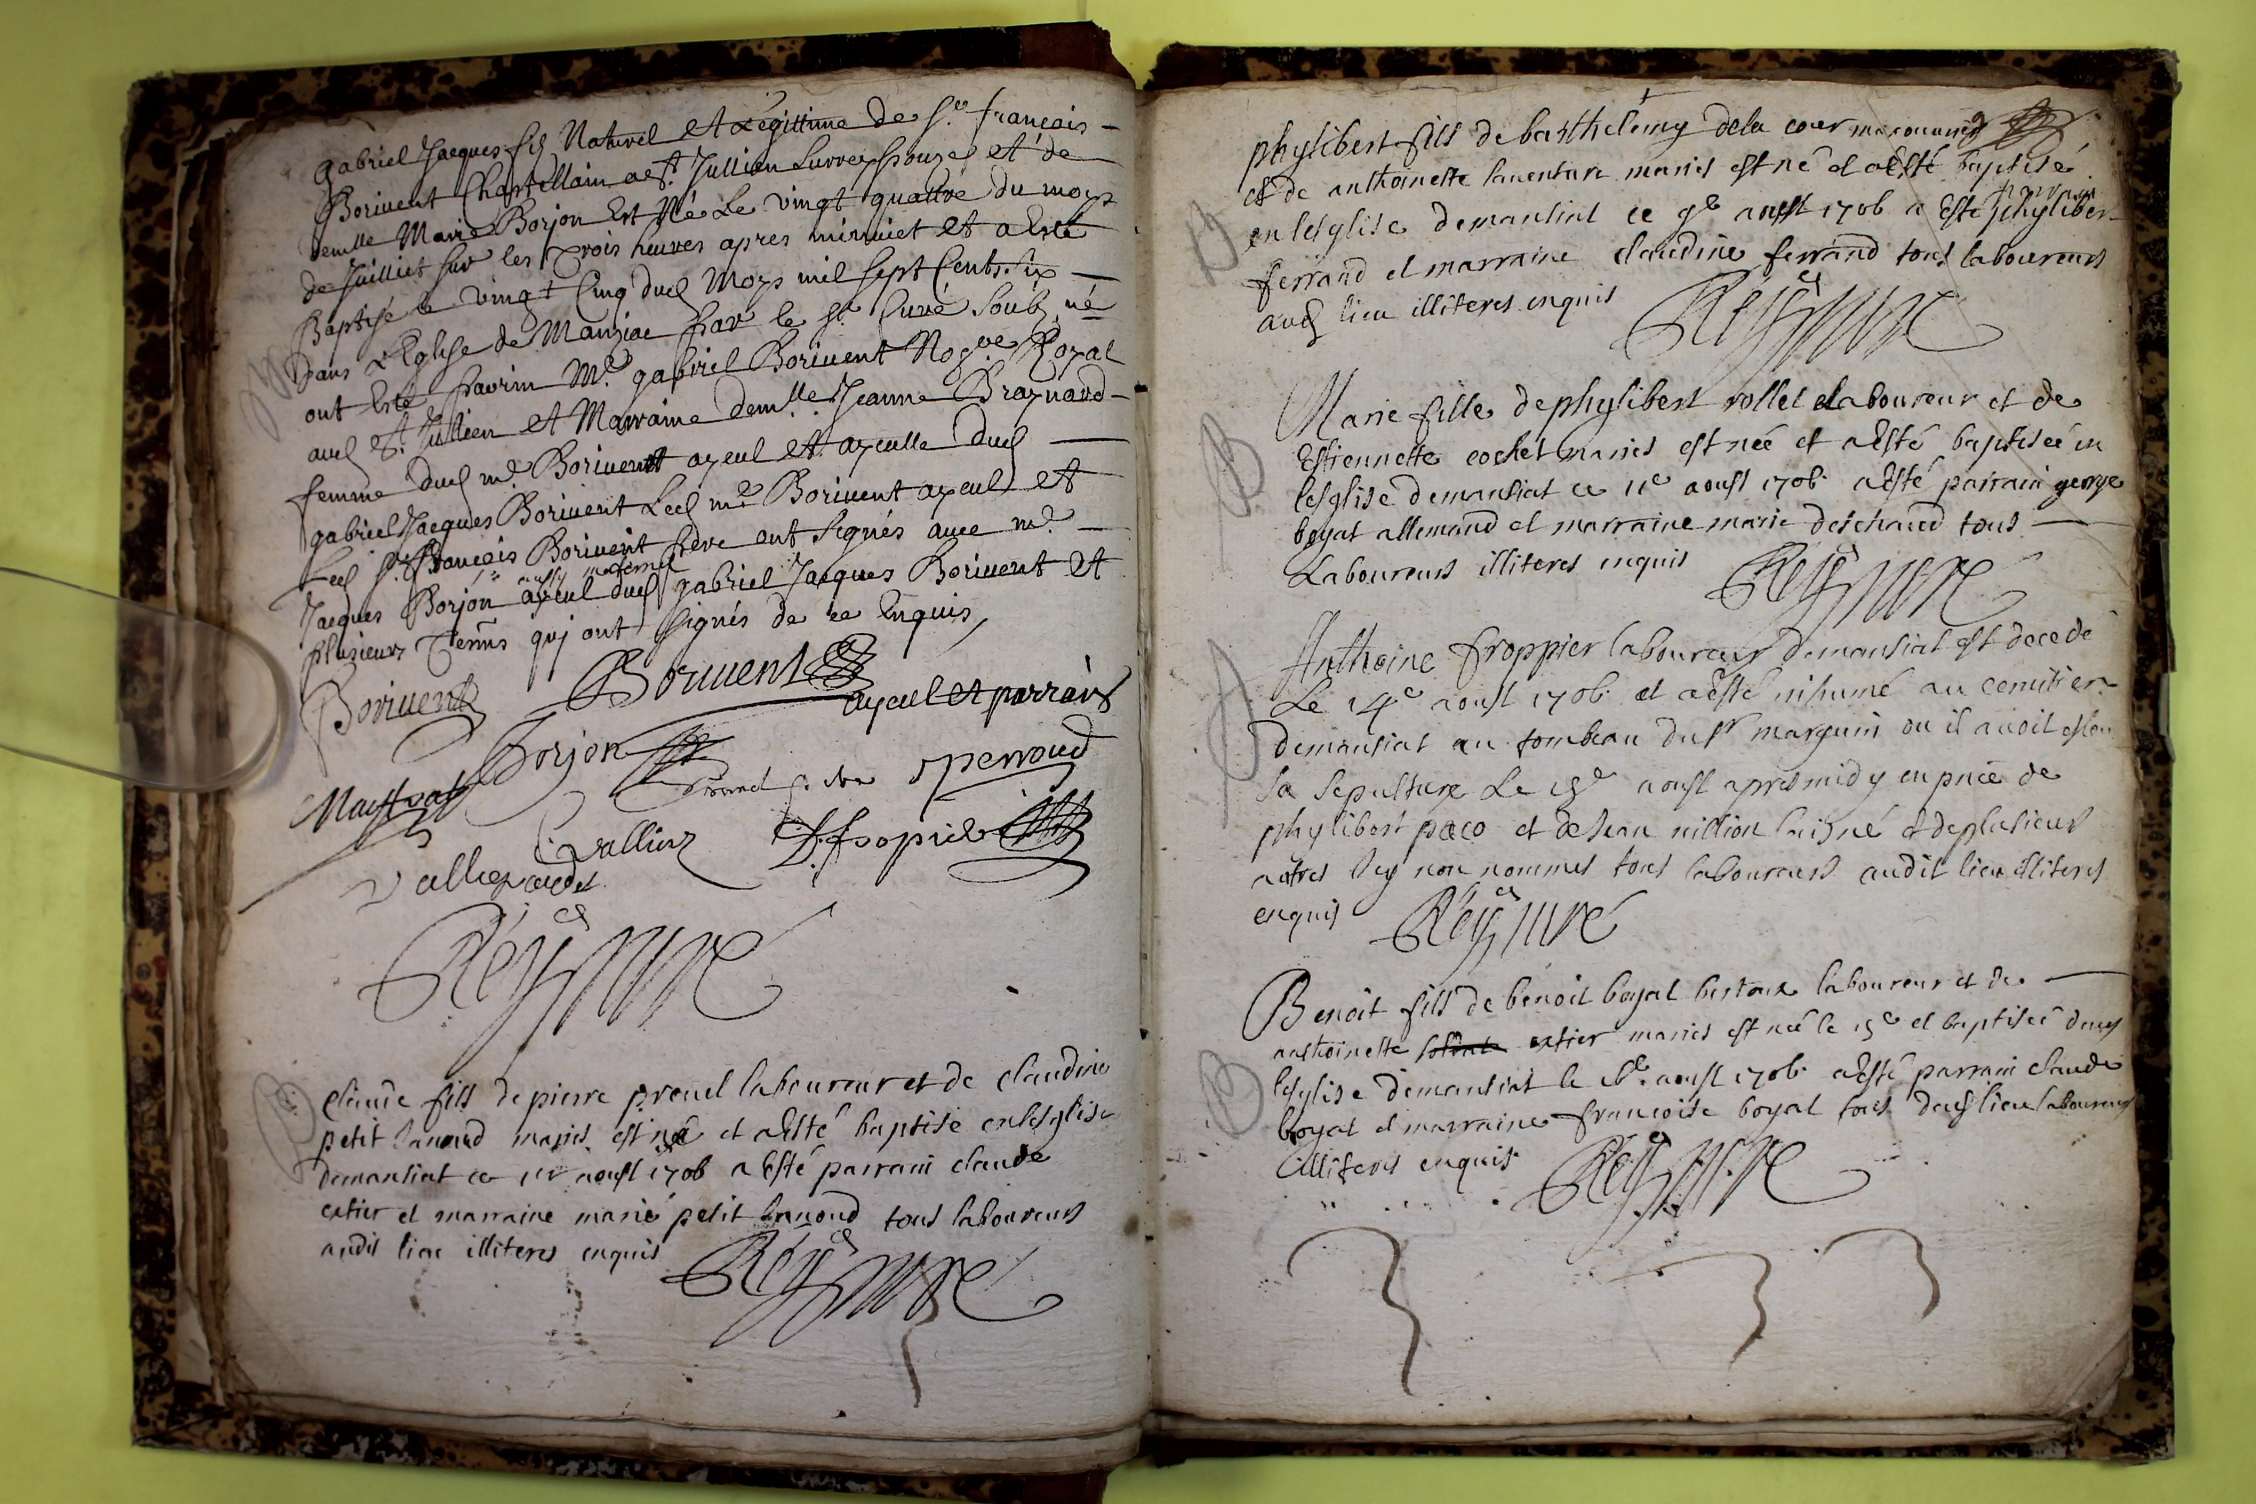 gabriel Jacques fils Naturel et Legittime de Sr. françois
Boriuent Chastellain a St. Jullien Surreyssouze et de
demlle Marie Borjon Est Né Le vingt quattre du moys
de Juilliet sur les Trois heures apres minuict et a Esté
Baptisé le vingt Cinq dud Moys mil sept Cents six
Dans L'Eglise de Mansiac par le Sr. Curé Soub né
ont Esté parrin Me. gabriel Boriuent Nore Royal
aud St. Jullien et Marraine demlle. Jeanne Braynard
femme dud me. Boriuent ayeul et ayeulle dud
gabriel Jacques Boriuent Led me Boriuent ayeul et
Led Sr. François Boriuent père ont signés auec me
Jacques Borjon aussy maternel ayeul dud gabriel Jacques Boriuent et
plusieurs Temns quj ont signés de ce Enquis
Boriuent Boriuent
ayeul et parrain
Borjon
perroud
Vallier
Reÿ Curé
Claude fils de pierre preuel laboureur et de Claudine
petit Janond mariés est né et a Esté baptisé en lesglise
demansiat ce 1er aoust 1706 a Esté parrain claude
extier et marraine marie petit Janond tous laboureurs
audit lieu illiteres enquis
Reÿ Curé
phylibert fils de barthelemy dela cour
et de anthoinette lauenture mariés est né et a Esté baptisé
en lesglise demansiat ce 9e aoust 1706 a Esté parrain phylibert
ferrand et marraine claudine ferrand tous laboureurs
aud lieu illiteres enquis
Reÿ Curé
Marie fille de phylibert rollet laboureur et de
Estiennette cochet mariés est née et a Esté baptisée en
lesglise demansiat ce 11e aoust 1706 a Esté parrain george
boyat allemand et marraine marie deschaud tous
Laboureurs illiteres enquis
Reÿ Curé
Anthoine froppier laboureur demansiat est decedé
Le 14e aoust 1706 et a esté inhumé au cemitier
demansiat au tombeau du Sr marguin ou il auoit esleu
sa sepulture Le 15e aoust apres midy en pnce de
phylibert paco et de Jean nillion laisné et de plusieurs
autres Icy non nommes tous laboureurs audit lieu illiteres
enquis
Reÿ Curé
Benoit fils de benoit boyat bertoux laboureur et de
anthoinette extier mariés est né le 15e et baptisé dans
lesglise demansiat le 16e aoust 1706 a Esté parrain claude
boyat et marraine francoise boyat tous dud lieu laboureurs
illiteres enquis
Reÿ Curé